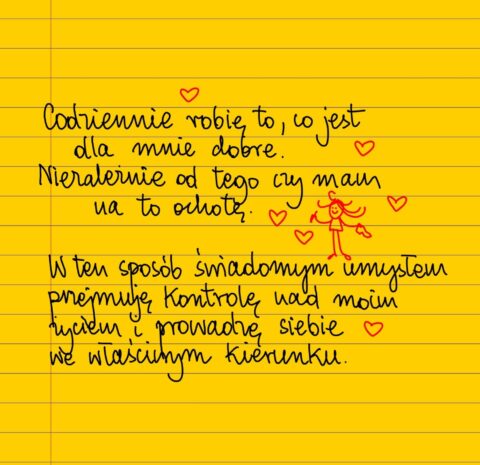 Codziennie robię to, co jest
dla mnie dobre.
Niezależnie od tego czy mam
na to ochotę.
W ten sposób świadomym umysłem
przejmuję kontrolę nad moim
życiem i prowadzę siebie
we właściwym kierunku.